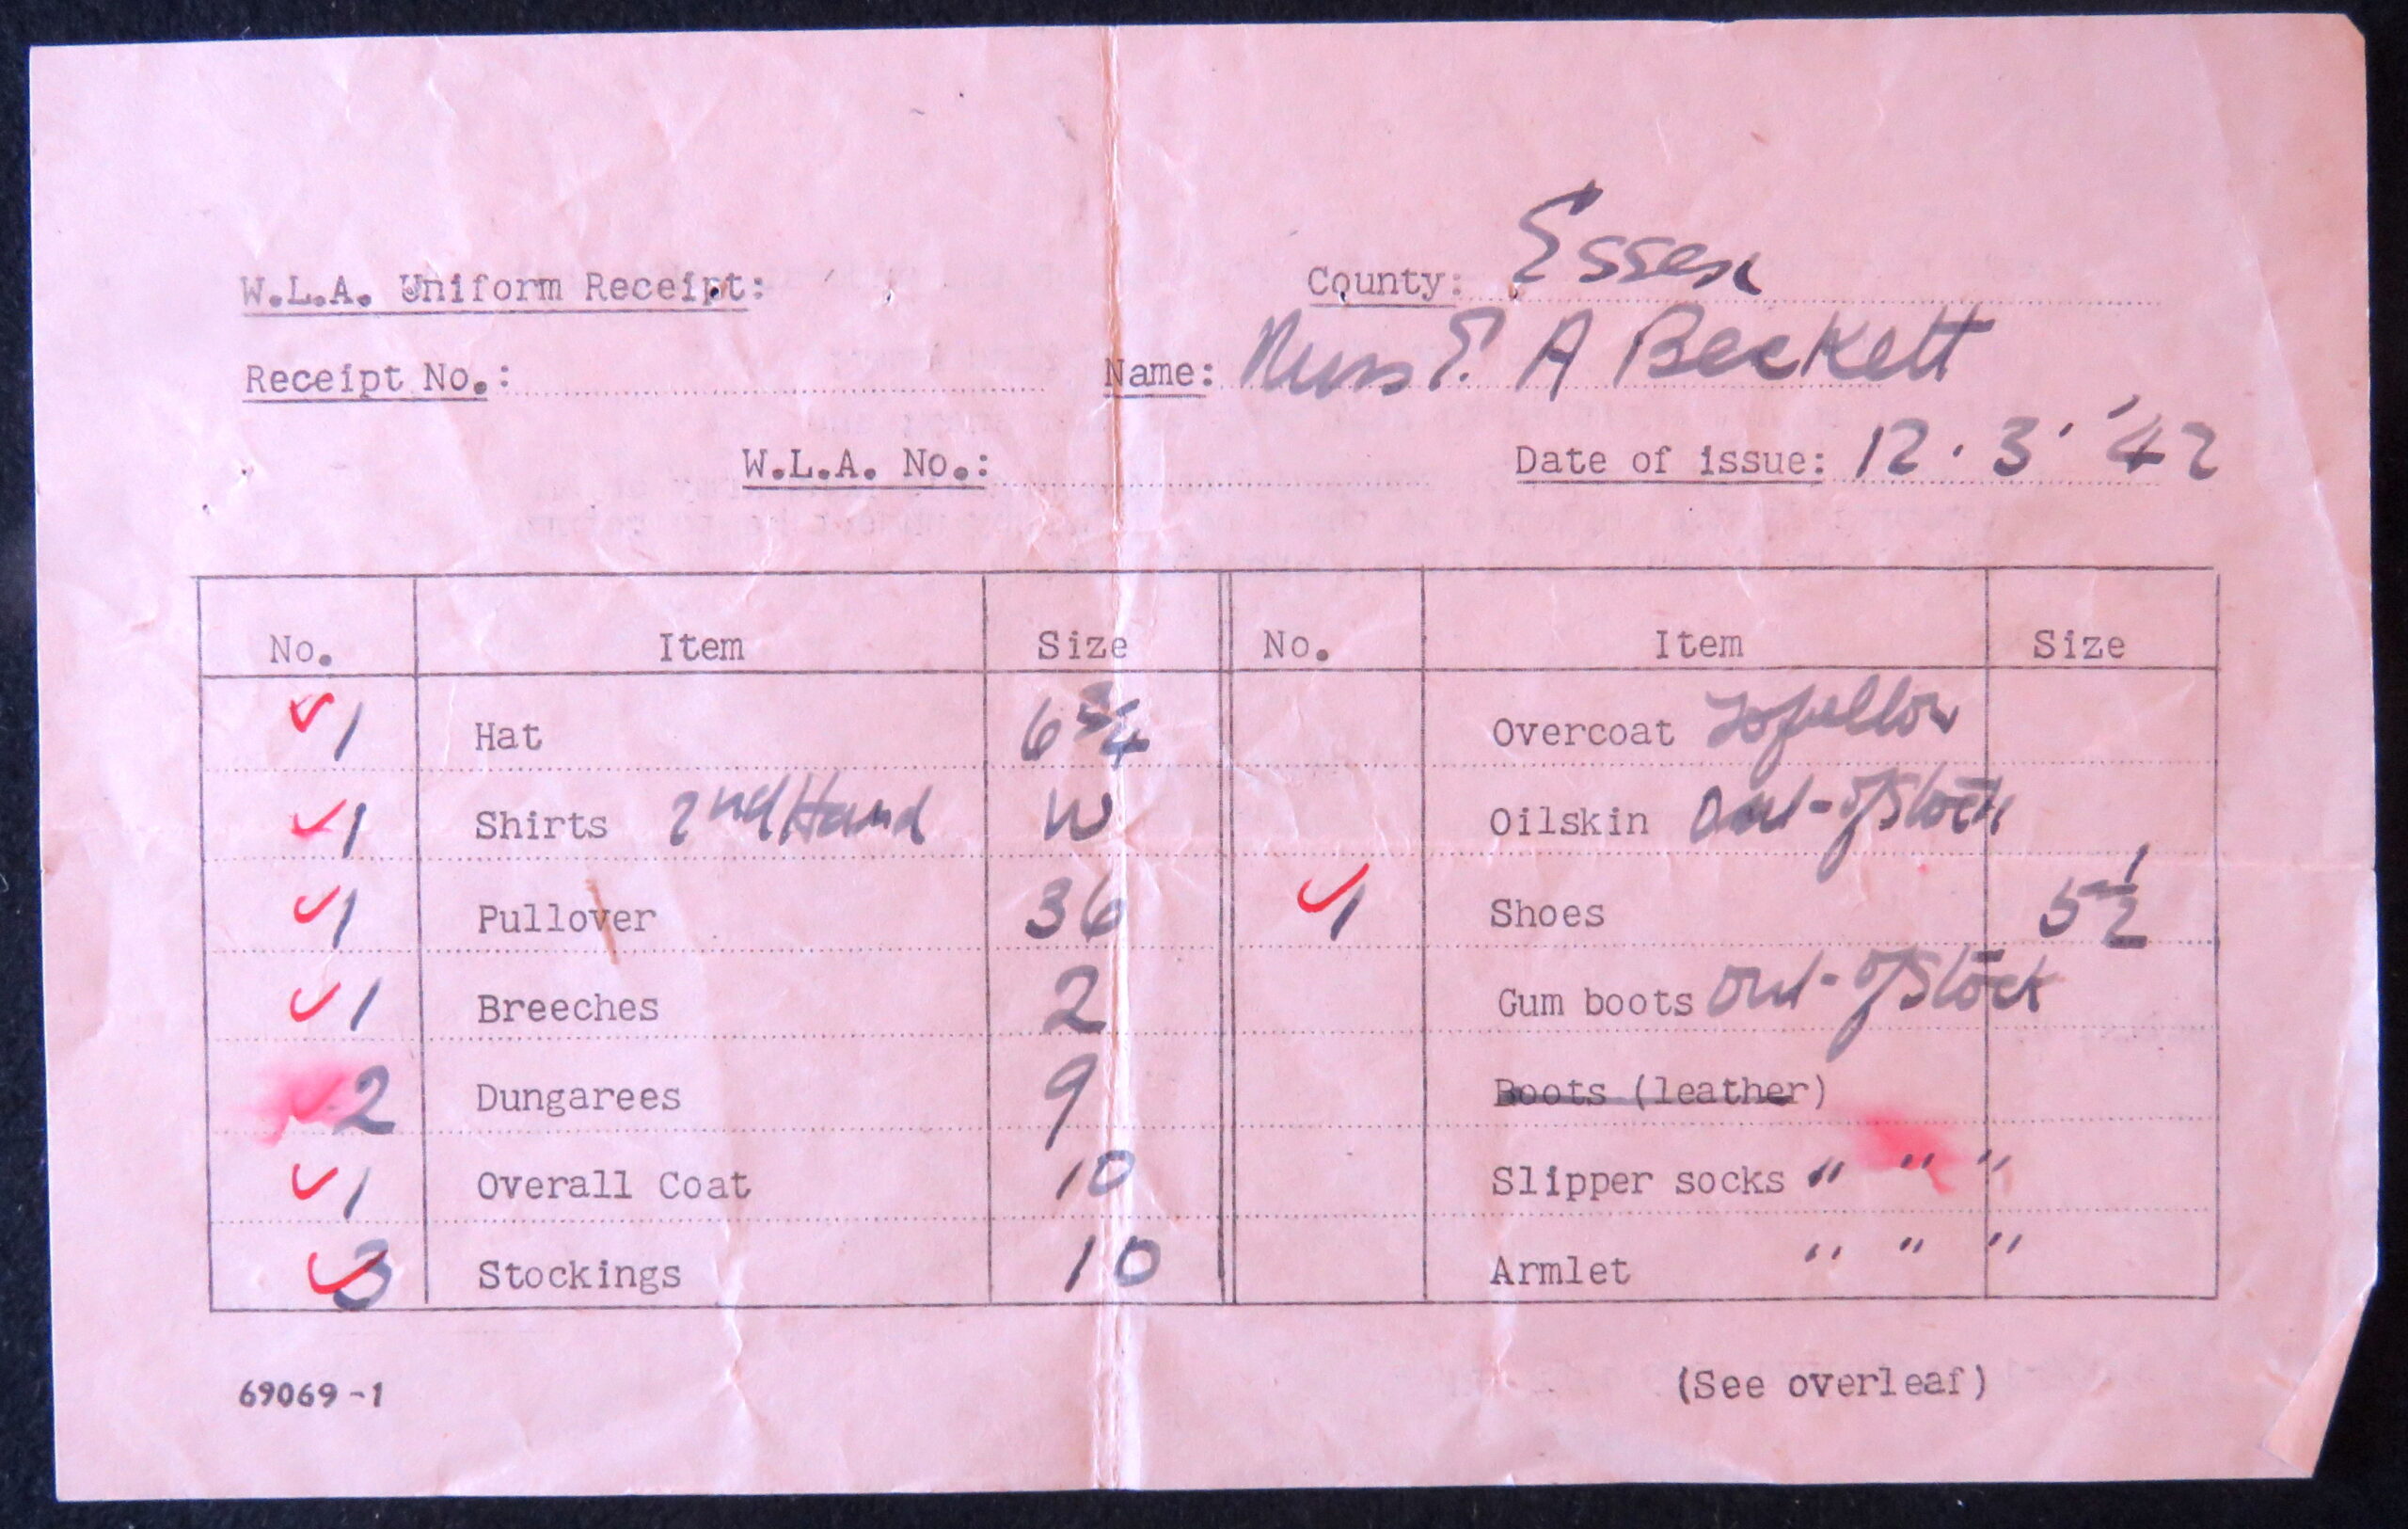 W.L.A. Uniform Receipt: County: Essex
Receipt No.: Name: Miss E. A Beckett
W.L.A. No.: Date of issue: 12.3.'42
No. Item Size No. Item Size
✓1 Hat 6 3/4 Overcoat To follow
✓1 Shirts 2nd Hand W Oilskin Out-of Stock
✓1 Pullover 36 ✓1 Shoes 5 1/2
✓1 Breeches 2 Gum boots Out-of Stock
✓2 Dungarees 9 Boots (leather)
✓1 Overall Coat 10 Slipper socks " " "
✓3 Stockings 10 Armlet " " "
69069-1 (See overleaf)